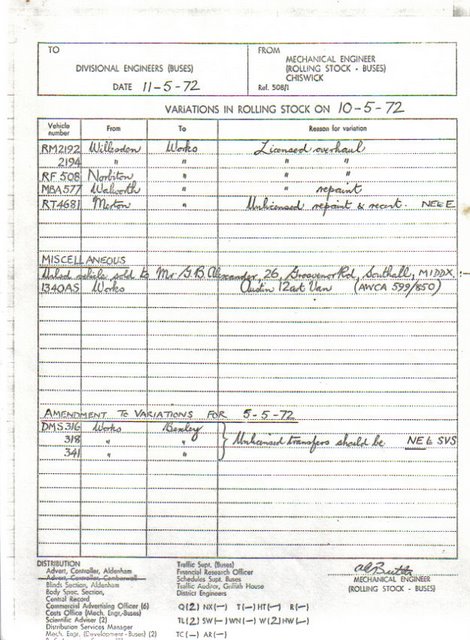 TO
DIVISIONAL ENGINEERS (BUSES)
DATE 11-5-72
FROM
MECHANICAL ENGINEER
(ROLLING STOCK - BUSES)
CHISWICK
Ref. 508/1
VARIATIONS IN ROLLING STOCK ON 10-5-72
Vehicle number From To Reason for variation
RM2192 Willesden Works Licensed overhaul
2194 " " " "
RF 508 Norbiton " " "
MBA577 Walworth " " repaint
RT4681 Merton " Unlicensed repaint & recert. NE & E.
MISCELLANEOUS
Unlicd vehicle sold to Mr G.B. Alexander, 26, Grosvenor Rd, Southall, MIDDX. :-
1340AS Works Austin 12cwt Van (AWCA 599/850)
AMENDMENT TO VARIATIONS FOR 5-5-72
DMS316 Works Bexley
318 " " Unlicensed transfers should be NE & SVS
341 " "
DISTRIBUTION
Advert. Controller, Aldenham
Advert. Controller, Camberwell
Blinds Section, Aldenham
Body Spec. Section,
Central Record
Commercial Advertising Officer (6)
Costs Office (Mech. Engr.-Buses)
Scientific Adviser (2)
Distribution Services Manager
Mech. Engr. (Development - Buses) (2)
Traffic Supt. (Buses)
Financial Research Officer
Schedules Supt. Buses
Traffic Auditor, Griffith House
District Engineers
Q(2) NX(-) T(-) HT(-) R(-)
TL(2) SW(-) WN(-) W(2) HW(-)
TC(-) AR(-)
MECHANICAL ENGINEER
(ROLLING STOCK - BUSES)